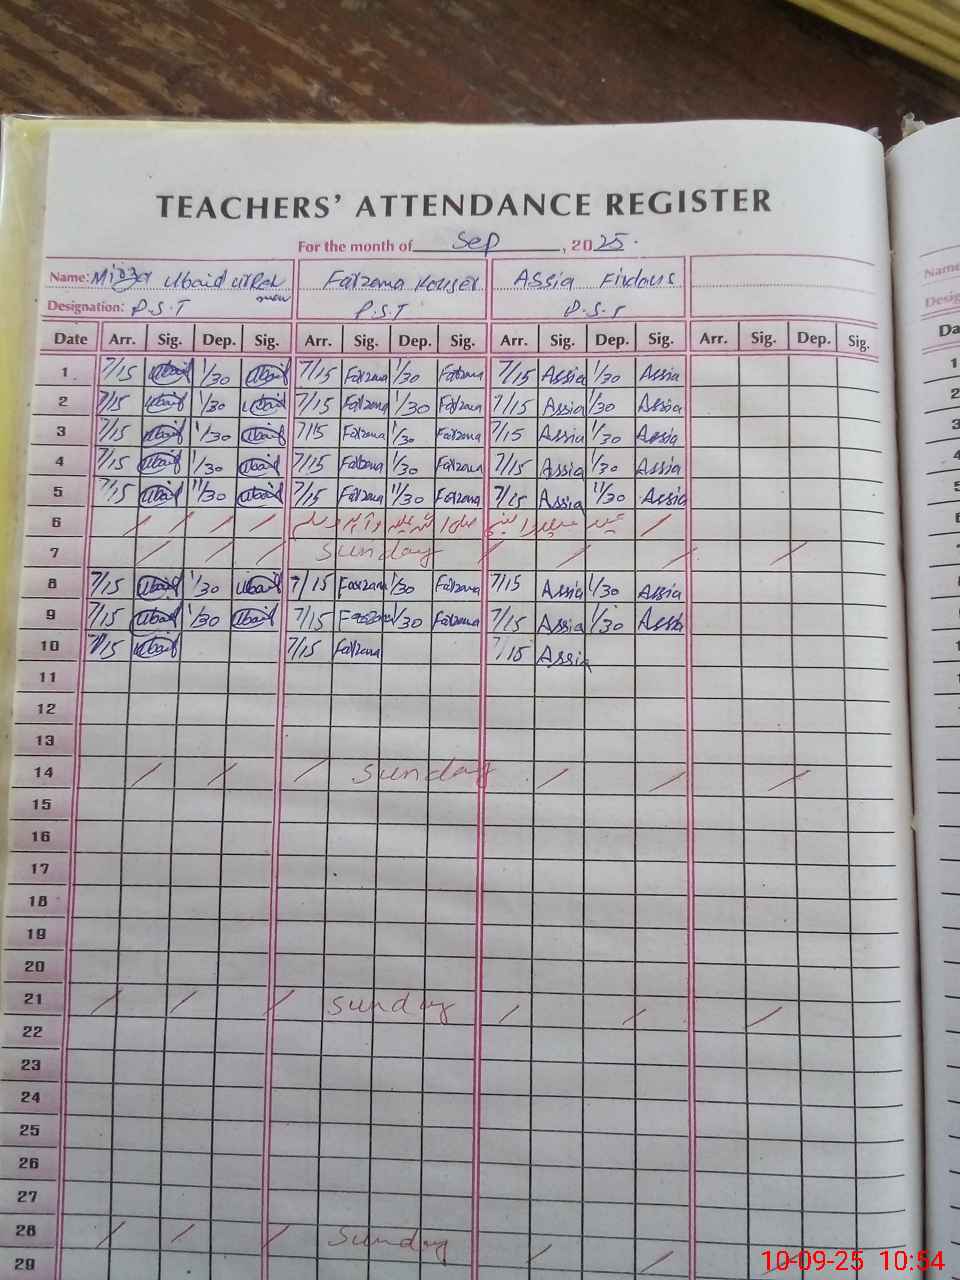 TEACHERS' ATTENDANCE REGISTER
For the month of Sep, 2025.
Name: Mirza Ubaid urReh Farzana Kouser Assia Firdous
man
Designation: P.S.T P.S.T P.S.T
Date Arr. Sig. Dep. Sig. Arr. Sig. Dep. Sig. Arr. Sig. Dep. Sig. Arr. Sig. Dep. Sig.
1 7/15 Ubaid 1/30 Ubaid 7/15 Farzana 1/30 Farzana 7/15 Assia 1/30 Assia
2 7/15 Ubaid 1/30 Ubaid 7/15 Farzana 1/30 Farzana 7/15 Assia 1/30 Assia
3 7/15 Ubaid 1/30 Ubaid 7/15 Farzana 1/30 Farzana 7/15 Assia 1/30 Assia
4 7/15 Ubaid 1/30 Ubaid 7/15 Farzana 1/30 Farzana 7/15 Assia 1/30 Assia
5 7/15 Ubaid 11/30 Ubaid 7/15 Farzana 11/30 Farzana 7/15 Assia 11/30 Assia
6
7 Sunday
8 7/15 Ubaid 1/30 Ubaid 7/15 Farzana 1/30 Farzana 7/15 Assia 1/30 Assia
9 7/15 Ubaid 1/30 Ubaid 7/15 Farzana 1/30 Farzana 7/15 Assia 1/30 Assia
10 7/15 Ubaid 7/15 Farzana 7/15 Assia
11
12
13
14 Sunday
15
16
17
18
19
20
21 Sunday
22
23
24
25
26
27
28 Sunday
29
10-09-25 10:54